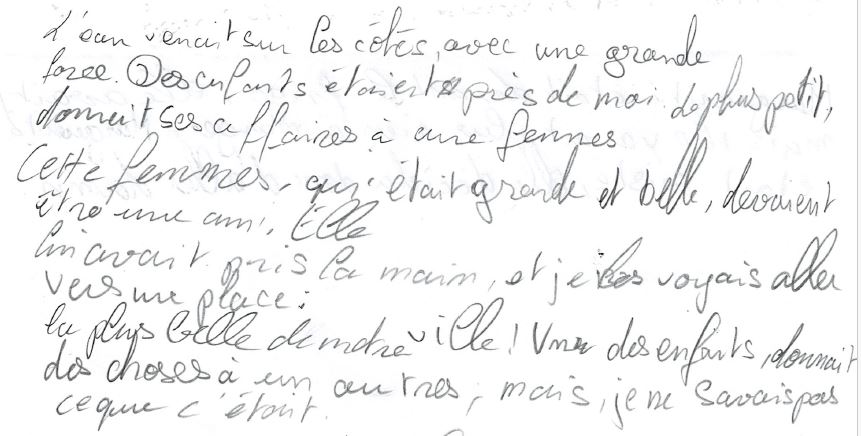 L'eau venait sur les côtés, avec une grande
force. Des enfants étaient près de moi. Le plus petit,
donnait ses affaires à une femmes
Cette femmes, qui était grande et belle, devaient
être une ami. Elle
lui avait pris la main, et je les voyais aller
vers une place :
la plus belle de notre ville ! Un des enfants, donnait
des choses à un autres, mais, je ne savais pas
ce que c'était.